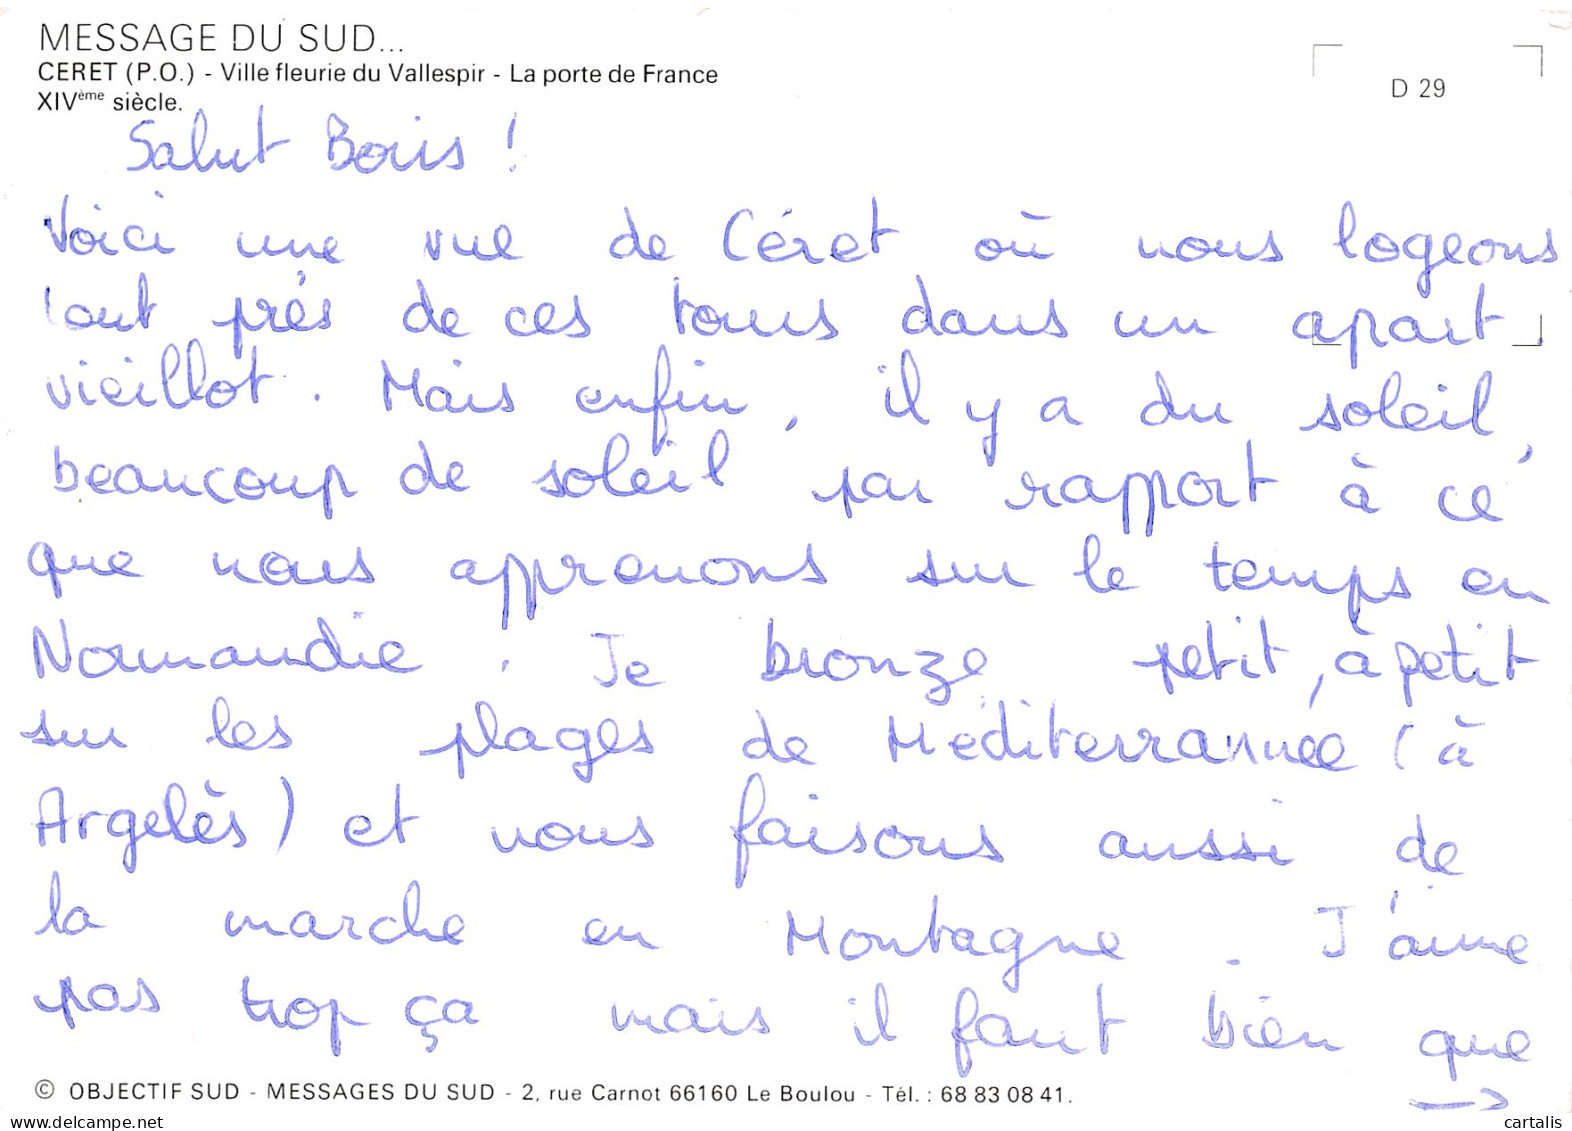 MESSAGE DU SUD...
CERET (P.O.) - Ville fleurie du Vallespir - La porte de France
XIVème siècle.
D 29
Salut Boris !
Voici une vue de Céret où nous logeons
tout près de ces tours dans un apart
vieillot. Mais enfin, il y a du soleil,
beaucoup de soleil par rapport à ce
que nous apprenons sur le temps en
Normandie. Je bronze petit, à petit
sur les plages de Méditerrannée (à
Argelès) et nous faisons aussi de
la marche en Montagne. J'aime
pas trop ça mais il faut bien que
→
© OBJECTIF SUD - MESSAGES DU SUD - 2, rue Carnot 66160 Le Boulou - Tél. : 68 83 08 41.
delcampe.net
cartalis